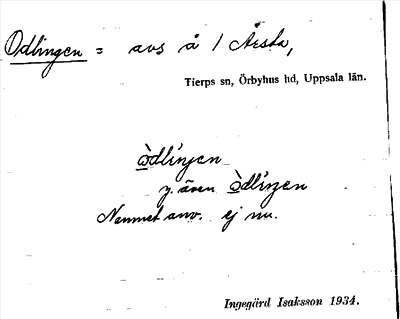 Odlingen = avs å / Årsta,
Tierps sn, Örbyhus hd, Uppsala län.
ὼdlíŋen
y. även ὼdlíŋen
Namnet anv. ej nu.
Ingegärd Isaksson 1934.